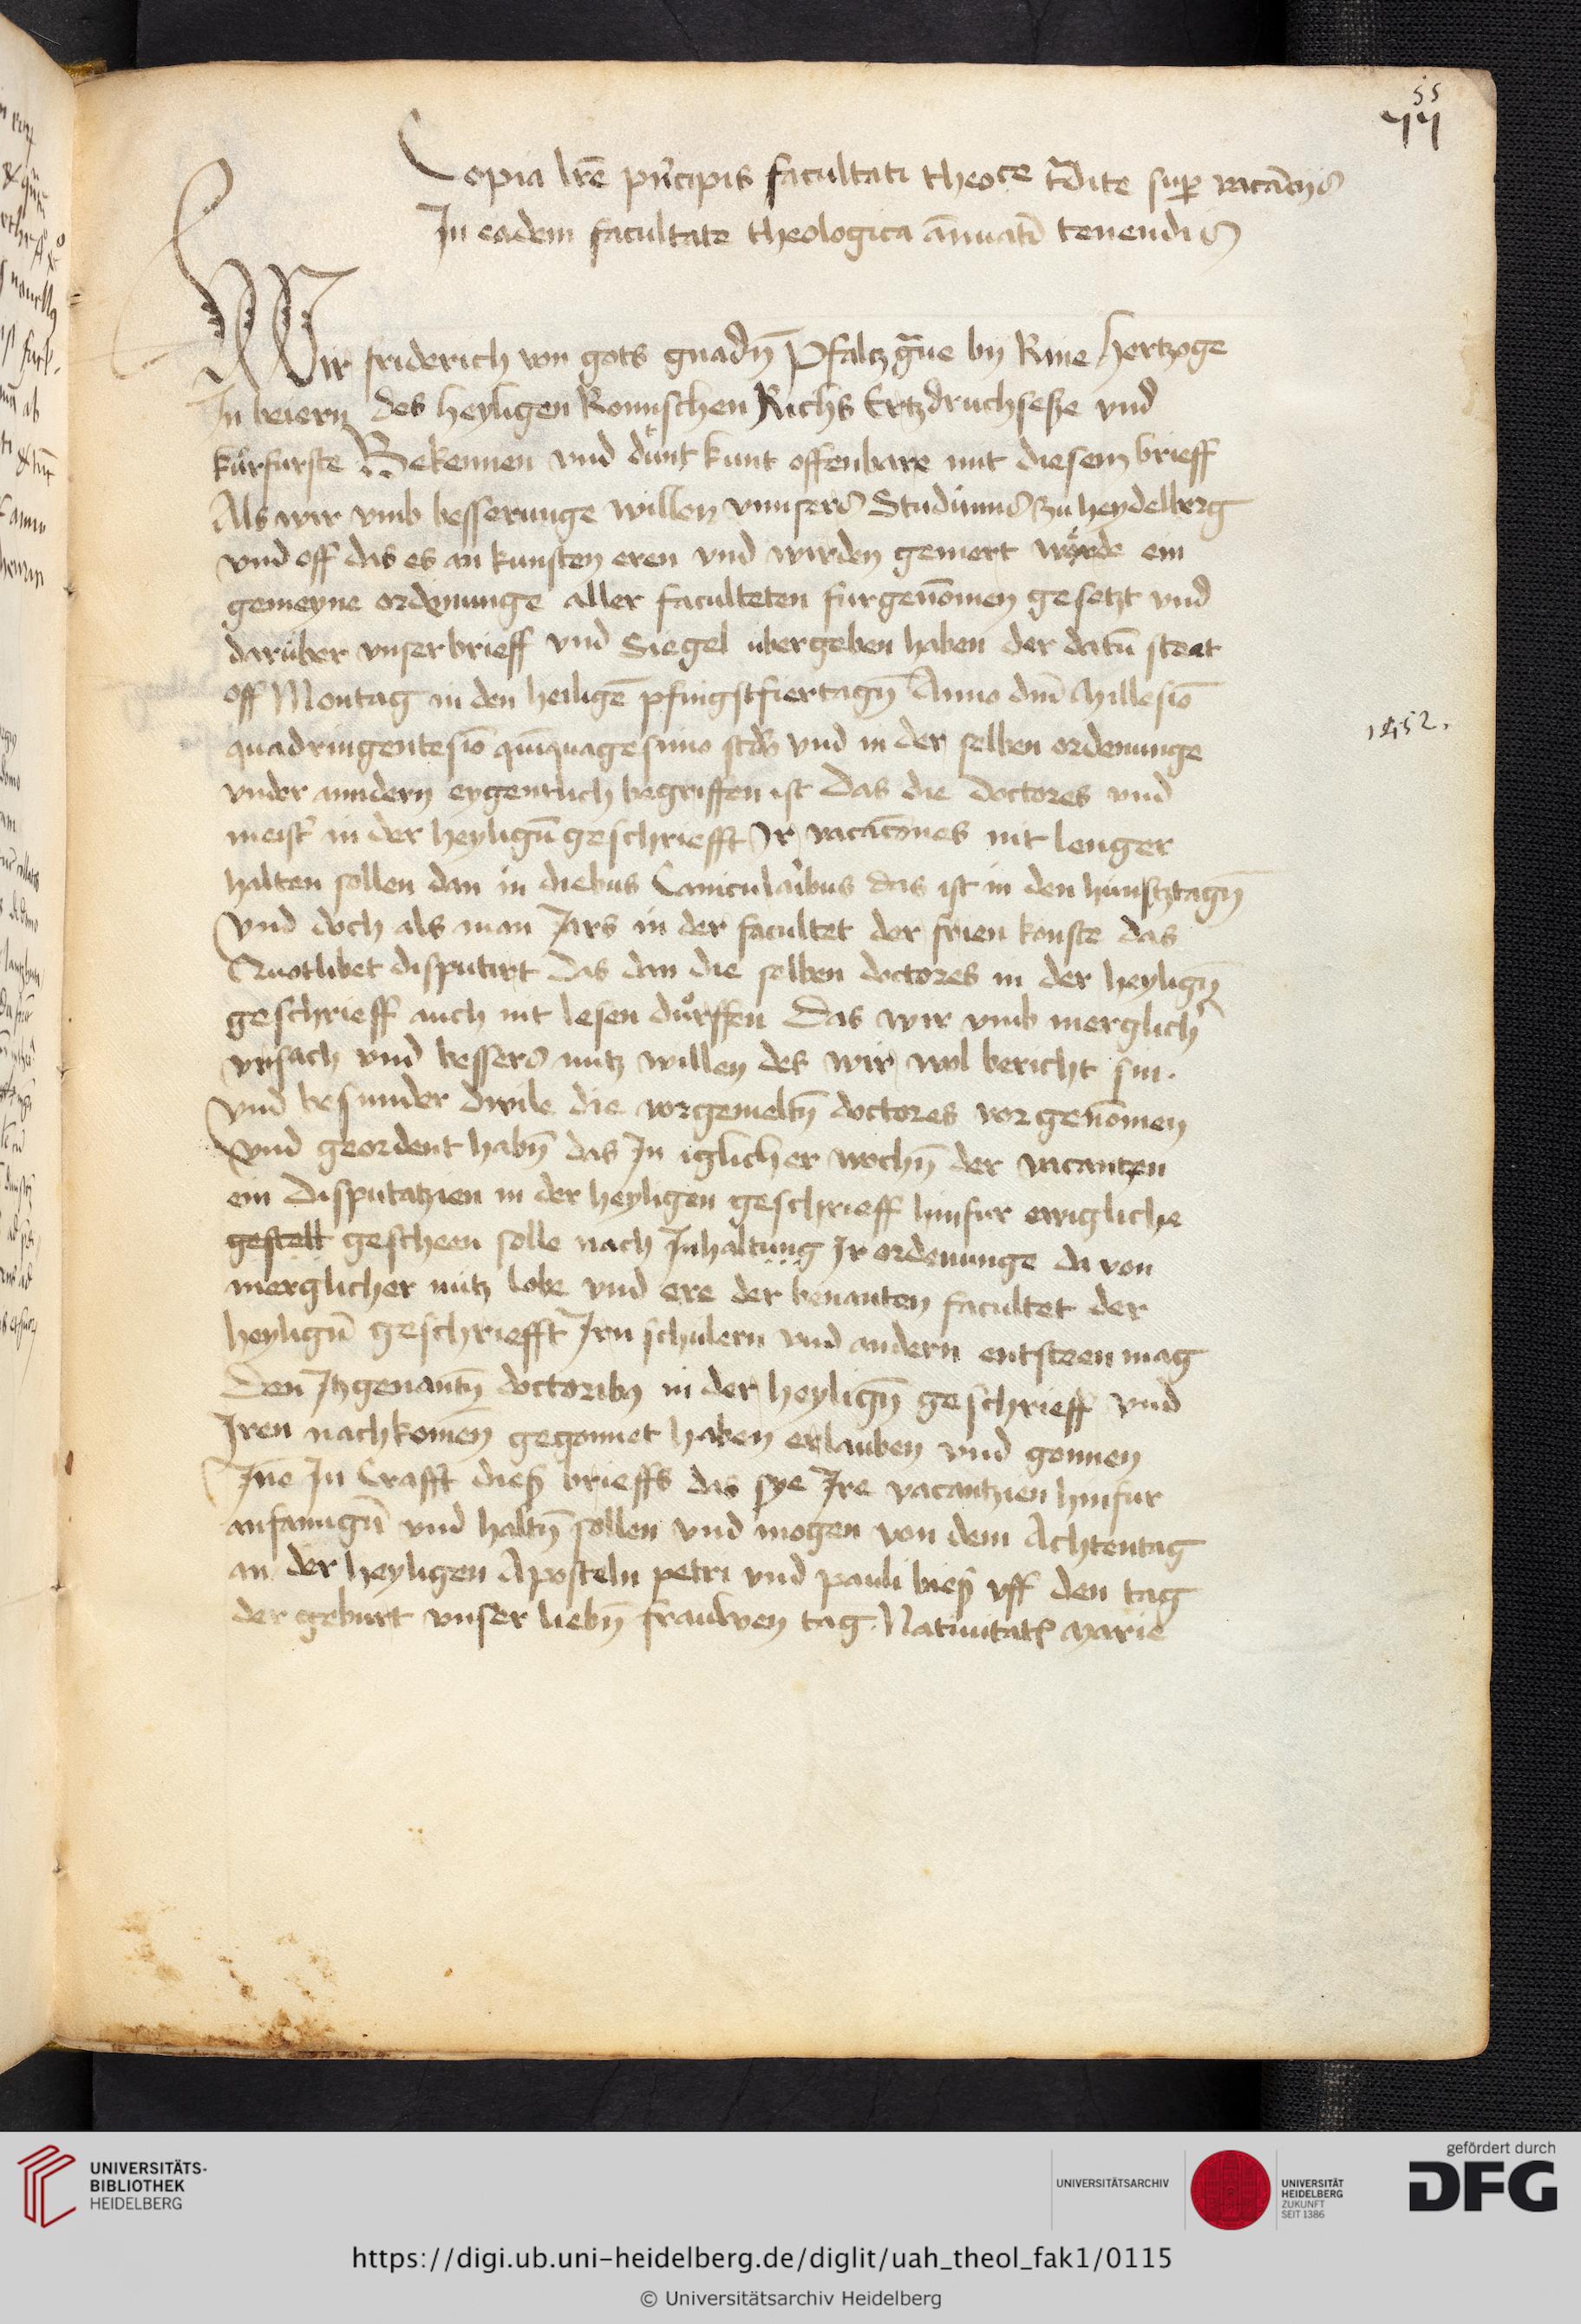 55
77
Copia lr̄e pn̄cipis facultati theoce tͣdite suꝑ vacācijs
In eadem facultate theologica ānuatī tenendis
Wir friderich von gots gnadn̄ Pfaltzgͣue by Rine hertzoge
In beiern des heyligen Romischen Richs Ertzdruchseße vnd
kürfurste Bekennen vnd dünt kunt offenbare mit diesem brieff
Als wir vmb besserunge willen vnnsers Studiums zu heydelberg
vnd off das es an kunsten eren vnd wirden gemert wörde ein
gemeyne ordenunge aller faculteten furgenōmen gesetzt vnd
darüber vnser brieff vnd Siegel übergeben haben der datū steet
off Montag in den heiligē pfingstfiertagn̄ Anno dn̄i Millesīo
1452.
quadringentesīo quīquagesimo scd̄o vnd in der selben ordenunge
vnder anndern eygentlich begriffen ist Das die doctores vnd
meist' in der heyligū geschriefft Ir vacacōnes nit lenger
halten sollen dan in diebus Canicularibus das ist in den hüntztagn̄
Vnd doch als man Jars in der facultet der frien konste das
Quotlibet disputirt das dan die selben doctores in der heylign̄
geschrieff auch nit lesen dürffen Das wir vmb merglich'
vrsach vnd bessers nutz willen des wir wol bericht sin.
Vnd besunder dwile die vorgemeltn̄ doctores vorgenōmen
Vnd geordent habn̄ das In iglicher wochn̄ der vacantzen
ein disputatzien in der heyligen geschrieff hinfur ewigliche
gestelt gescheen solle nach Inhaltung Ir ordenunge da von
merglicher nutz lobe vnd ere der benanten facultet der
heyligū geschriefft Irn schulern vnd andern entsteen mag
Den Itzgenantn̄ doctoribꝫ in der heylign̄ geschrieff vnd
Iren nachkomēn gegonnet haben erlauben vnd gonnen
Ine In Crafft dieß brieffs das sye Ire vacantzien hinfur
anfanngū vnd haltn̄ sollen vnd mogen von dem Achtentag
an der heyligen Aposteln petri vnd pauli bieß vff den tag
der geburt vnser liebn̄ frauwen tag Natiuitatꝭ Marie
UNIVERSITÄTS-
BIBLIOTHEK
HEIDELBERG
UNIVERSITÄTSARCHIV
UNIVERSITÄT
HEIDELBERG
ZUKUNFT
SEIT 1386
gefördert durch
DFG
https://digi.ub.uni-heidelberg.de/diglit/uah_theol_fak1/0115
© Universitätsarchiv Heidelberg